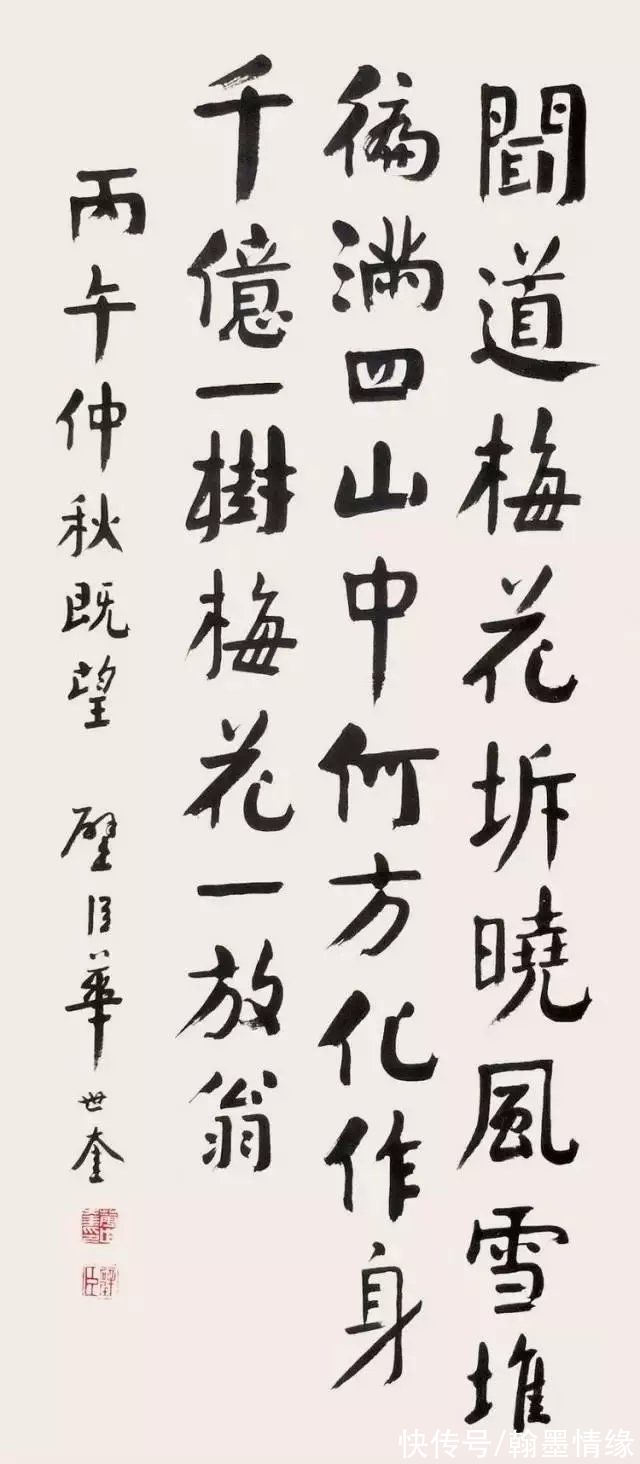 聞道梅花坼曉風雪堆
徧滿四山中何方化作身
千億一樹梅花一放翁
丙午仲秋既望 璧臣華世奎
快传号/翰墨情缘